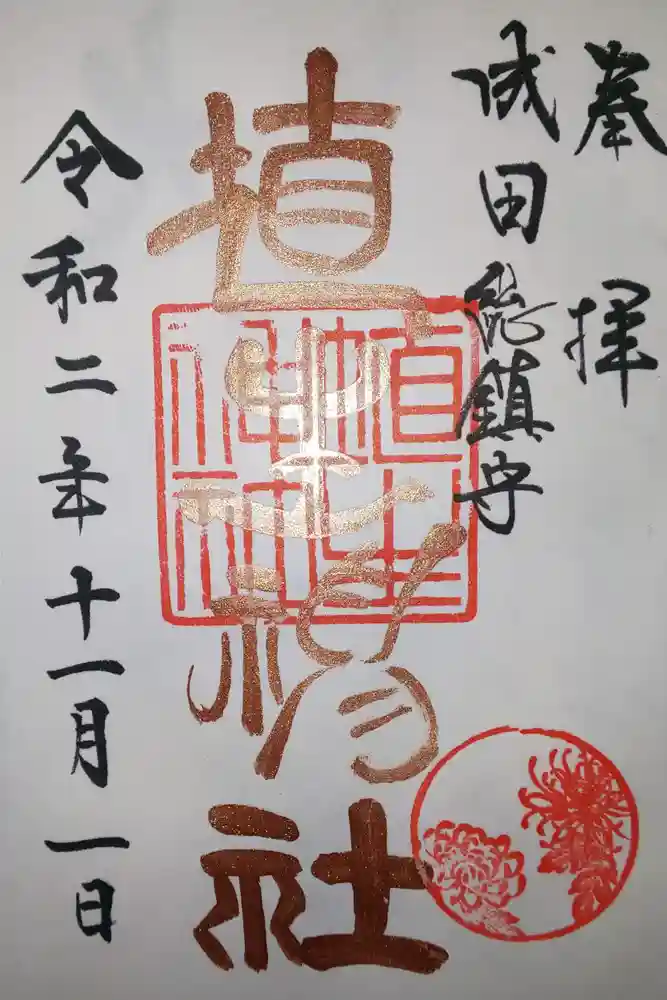 奉拝
成田総鎮守
埴生神社
令和二年十一月一日